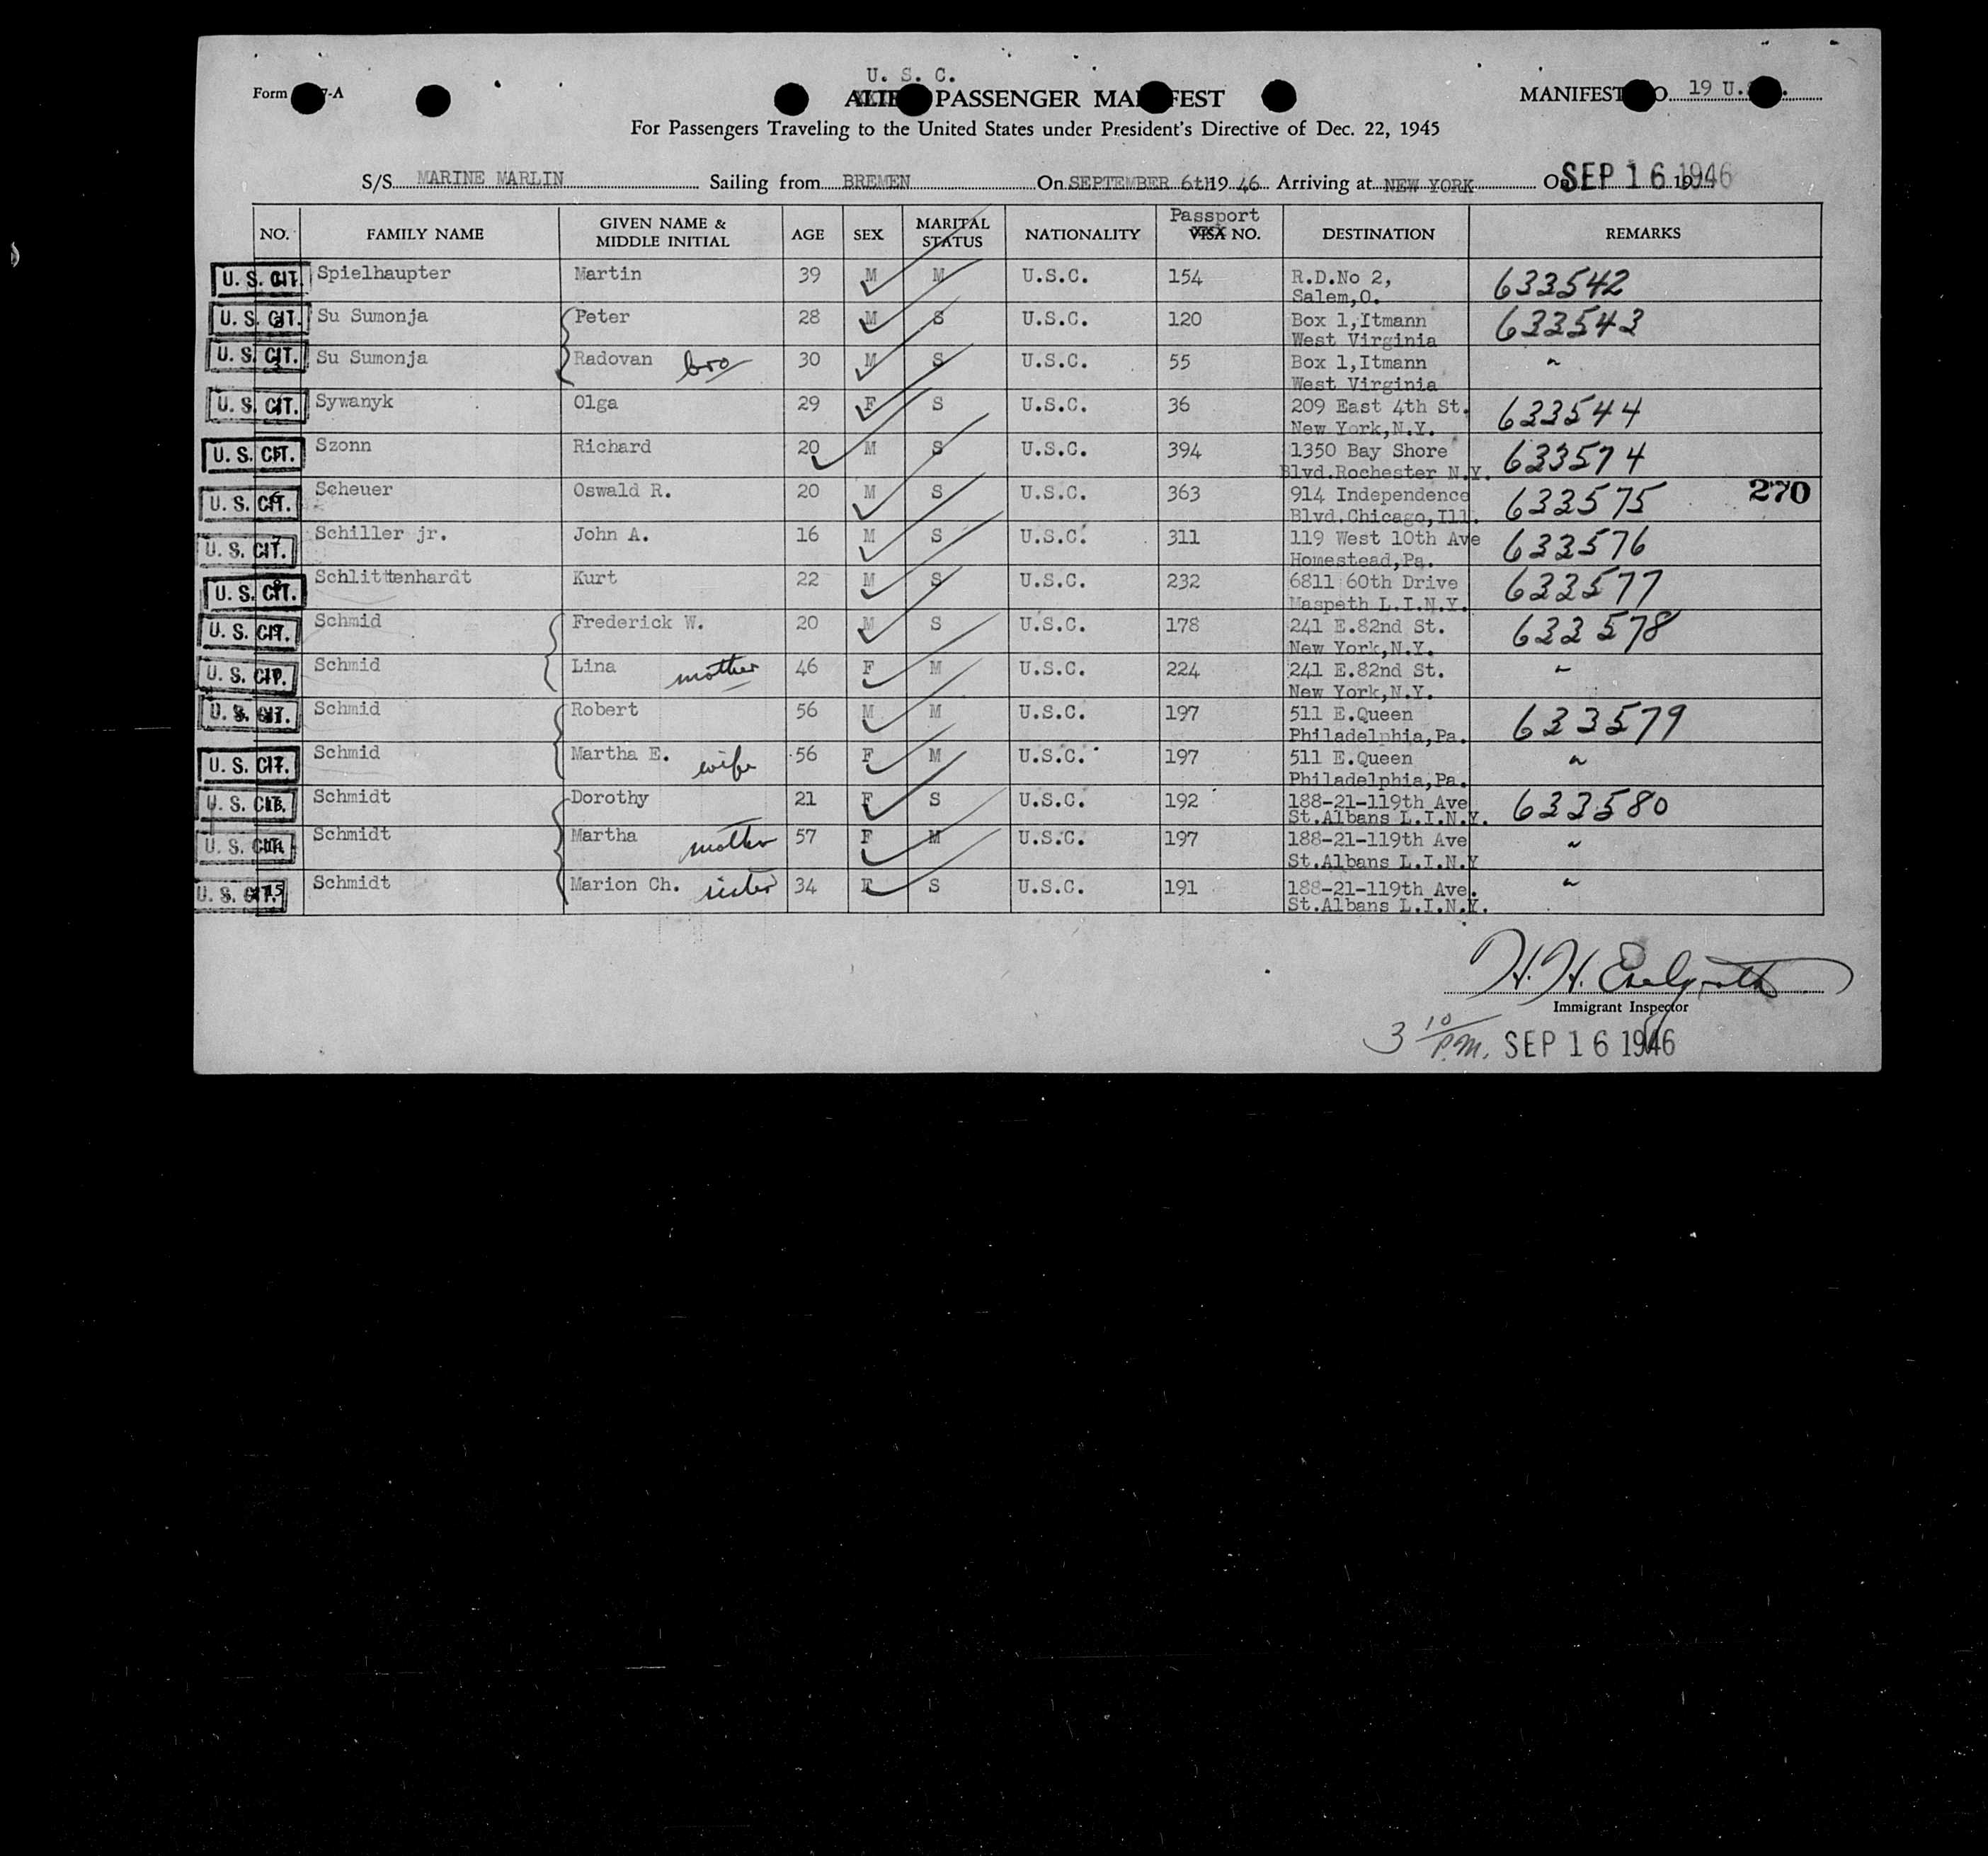 U. S. C.
Form 7-A
PASSENGER MANIFEST
MANIFEST NO. 19 U.S.
For Passengers Traveling to the United States under President's Directive of Dec. 22, 1945
S/S MARINE MARLIN Sailing from BREMEN On SEPTEMBER 6th 19 46 Arriving at NEW YORK On SEP 16 1946
Passport
NO. FAMILY NAME GIVEN NAME & MIDDLE INITIAL AGE SEX MARITAL STATUS NATIONALITY VISA NO. DESTINATION REMARKS
U. S. CIT. Spielhaupter Martin 39 M M U.S.C. 154 R.D.No 2, 633542
Salem,O.
U. S. CIT. Su Sumonja Peter 28 M S U.S.C. 120 Box 1,Itmann 633543
West Virginia
U. S. CIT. Su Sumonja Radovan bro 30 M S U.S.C. 55 Box 1,Itmann "
West Virginia
U. S. CIT. Sywanyk Olga 29 F S U.S.C. 36 209 East 4th St. 633544
New York,N.Y.
U. S. CIT. Szonn Richard 20 M S U.S.C. 394 1350 Bay Shore 633574
Blvd.Rochester N.Y.
U. S. CIT. Scheuer Oswald R. 20 M S U.S.C. 363 914 Independence 633575 270
Blvd.Chicago,Ill.
U. S. CIT. Schiller jr. John A. 16 M S U.S.C. 311 119 West 10th Ave 633576
Homestead,Pa.
U. S. CIT. Schlitttenhardt Kurt 22 M S U.S.C. 232 6811 60th Drive 633577
Maspeth L.I.N.Y.
U. S. CIT. Schmid Frederick W. 20 M S U.S.C. 178 241 E.82nd St. 633578
New York,N.Y.
U. S. CIT. Schmid Lina mother 46 F M U.S.C. 224 241 E.82nd St. "
New York,N.Y.
U. S. CIT. Schmid Robert 56 M M U.S.C. 197 511 E.Queen 633579
Philadelphia,Pa.
U. S. CIT. Schmid Martha E. wife 56 F M U.S.C. 197 511 E.Queen "
Philadelphia,Pa.
U. S. CIT. Schmidt Dorothy 21 F S U.S.C. 192 188-21-119th Ave 633580
St.Albans L.I.N.Y.
U. S. CIT. Schmidt Martha mother 57 F M U.S.C. 197 188-21-119th Ave "
St.Albans L.I.N.Y
U. S. CIT. 15 Schmidt Marion Ch. sister 34 F S U.S.C. 191 188-21-119th Ave. "
St.Albans L.I.N.Y.
H. H.
Immigrant Inspector
3 10/P.M. SEP 16 1946